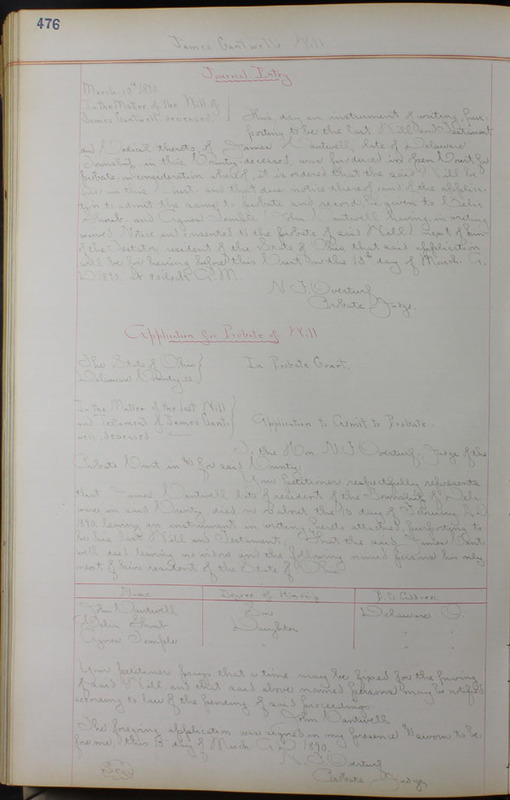 476
James Cantwell's Will
Journal Entry
March 10th 1890
In the Matter of the Will of
James Cantwell deceased.
This day an instrument of writing, pur-
porting to be the last Will and Testament
and Codicil thereto, of James Cantwell, late of Delaware
Township in this County, deceased, was produced in open Court for
probate, in consideration whereof, it is ordered that the said Will be
filed in this Court, and that due notice thereof and of the applica-
tion to admit the same to probate and record be given to Delia
and Agnes Temple, John Cantwell having in writing
waived Notice and consented to the probate of said Will, next of kin
of the testator, resident of the State of Ohio, that said application
will be for hearing before this Court on the day of March A.
D. 1890, at o'clock A.M.
N. F. Overturf
Probate Judge.
Application for Probate of Will
The State of Ohio
Delaware County, ss
In Probate Court.
In the Matter of the last Will
and Testament of James Cant-
well, deceased
Application to Admit to Probate.
To the Hon. N. F. Overturf, Judge of the
Probate Court in & for said County:
Your Petitioner respectfully represents
that James Cantwell late of resident of the Township of Dela-
ware in said County died on or about the 13 day of February A.D.
1890, leaving an instrument in writing, hereto attached, purporting to
be his last Will and Testament; That the said James Cant-
well died leaving no widow and the following named persons his only
next of kin resident of the State of Ohio
Name
Degree of Kinship
P.O. Address
John Cantwell
Son
Delaware O.
Delia
Daughter
" "
Agnes Temple
"
" "
Your petitioner prays that a time may be fixed for the proving
of said Will and that said above named persons may be notified
according to law of the pending of said proceedings.
John Cantwell
The foregoing application was signed in my presence & sworn to be-
fore me, this day of March A.D. 1890.
N. F. Overturf
Probate Judge